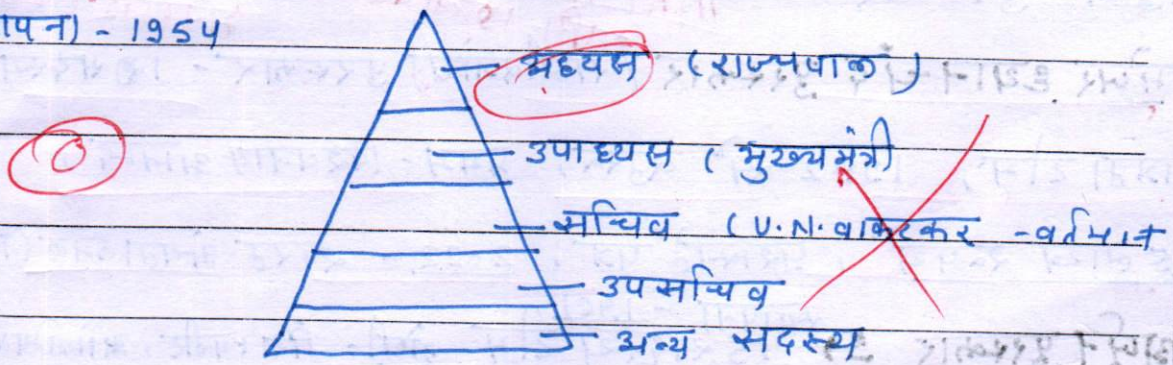 पन) - 1954
अध्यक्ष (राज्यपाल)
उपाध्यक्ष (मुख्यमंत्री
सचिव (U.N. वाकरकर - वर्तमान
उपसचिव
अन्य सदस्य